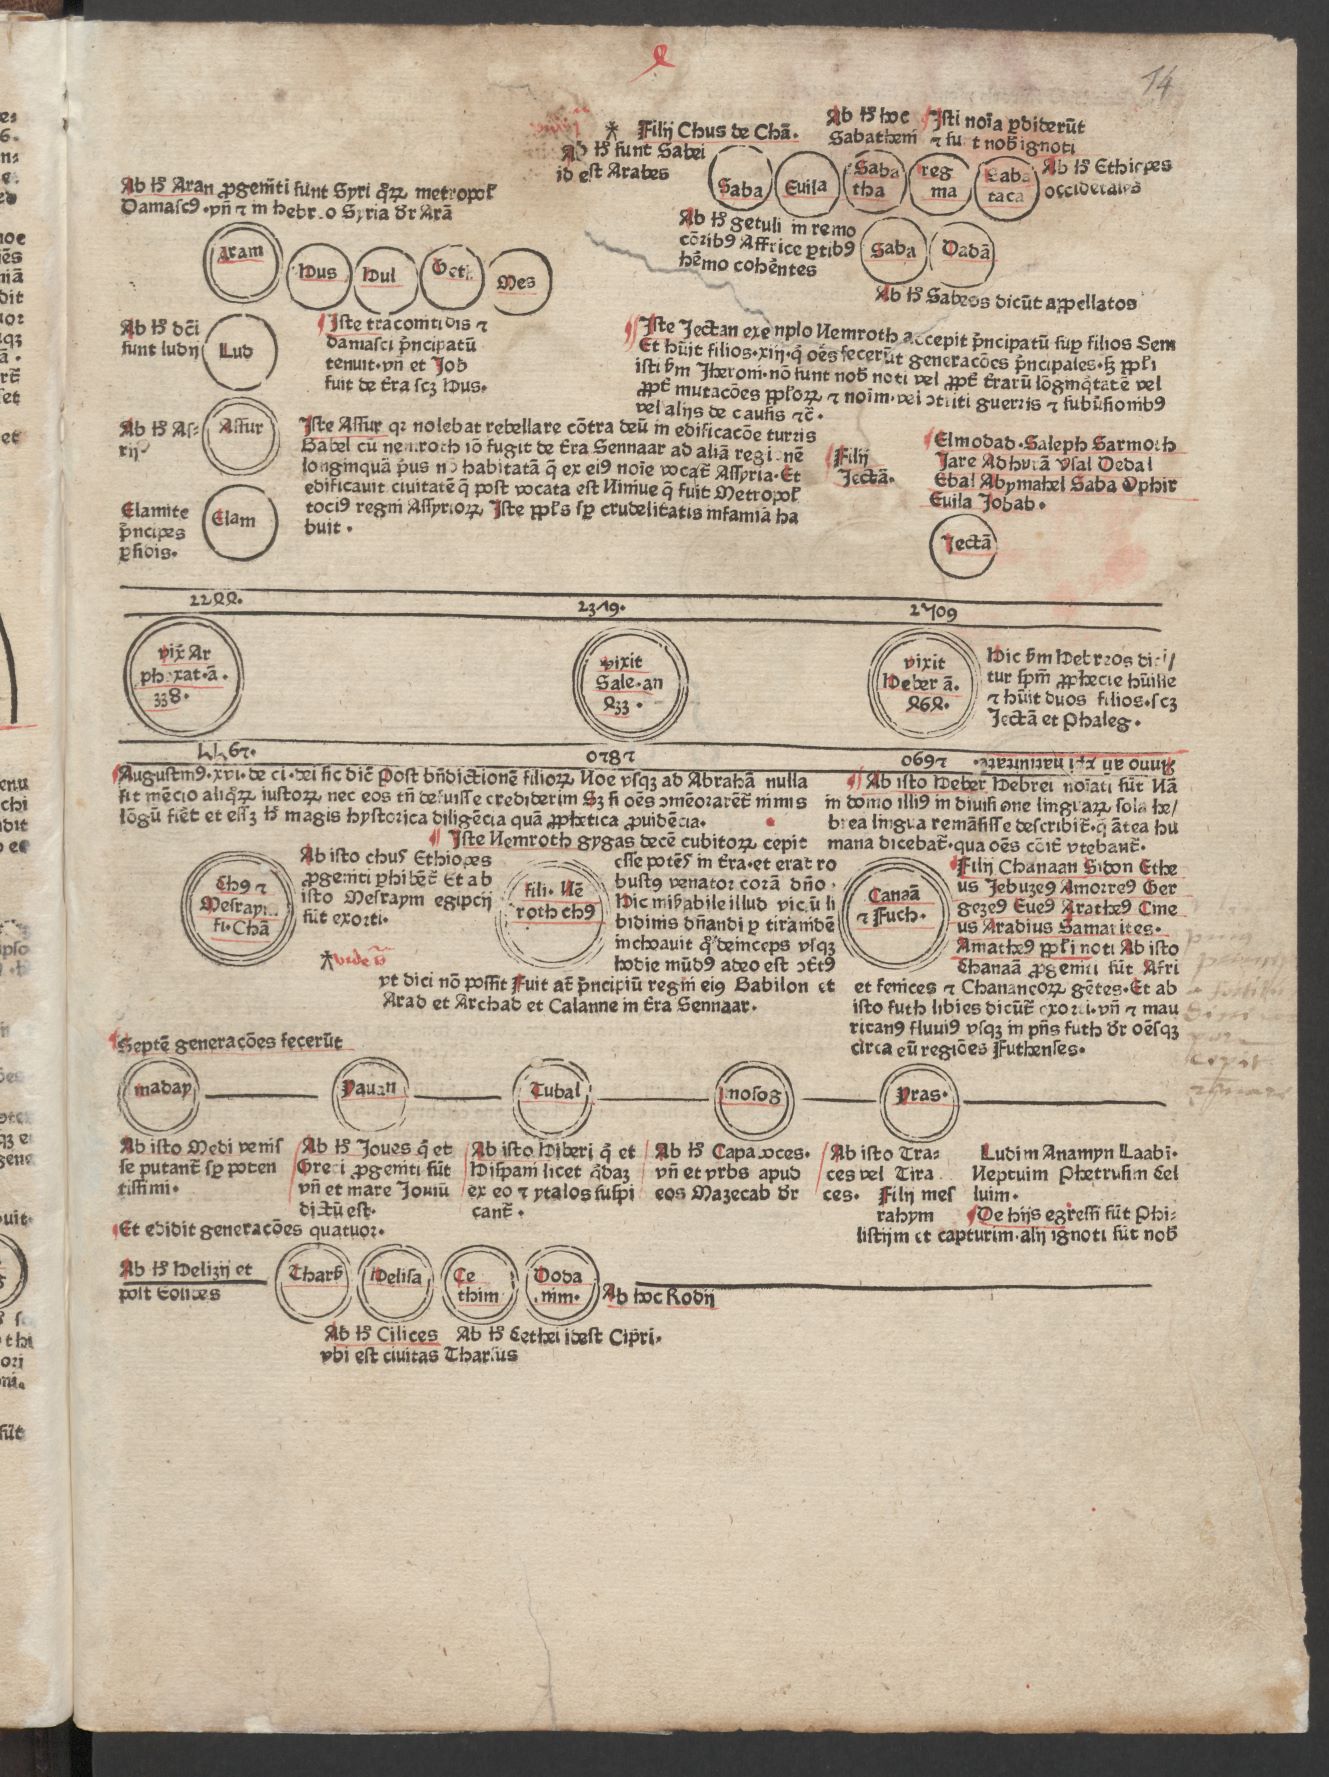 14
Filij Chus de Chā.
Ab hͦ sunt Sabei
id est Arabes
Ab hͦ hoc
Sabatheni
Isti noīa ꝑdiderūt
⁊ sūt nob̄ ignoti
Saba
Euila
Saba
tha
reg
ma
Saba
taca
Ab hͦ Ethiopes
occidētales
Ab hͦ Aran ꝓgenīti sunt Syri qͦꝝ metropol̄
Damascꝰ·vn̄ ⁊ in hebreo Syria dr̄ Arā
Aram
Hus
Hul
Geth
Mes
Ab hͦ getuli in remo
cōribꝰ Affrice ꝑtibꝰ
hēmo cohētes
Saba
Dadā
Ab hͦ Sabeos dicūt appellatos
Ab hͦ dc̄i
sunt ludij
Lud
Iste traconitidis ⁊
damasci pͥncipatū
tenuit·vn̄ et Job
fuit de t̄ra scꝫ Hus·
Iste Jectan exemplo Nemroth accepit pͥncipatū suꝑ filios Sem
Et hūit filios·xiij·q̄ oēs fecerūt generacōes pͥncipales·hꝫ ppl̄i
isti ẜm Jheroni·nō sunt nob̄ noti vel ꝓpt̄ t̄rarū lōgīqͥtatē vel
ꝓpt̄ mutacōes ppl̄oꝝ ⁊ noīm·vel ↄtriti guerris ⁊ subūsionibꝰ
vel alijs de causis ⁊c̄·
Ab hͦ As⸗
rij
Assur
Iste Assur qꝛ nolebat rebellare cōtra deū in edificacōe turris
Babel cū nemroth iō fugit de t̄ra Sennaar ad aliā regionē
longinquā pͥus nō habitatā q̄ ex eiꝰ noīe vocat̄ Assyria·Et
edificauit ciuitatē q̄ post vocata est Niniue q̄ fuit Metropol̄
tociꝰ regni Assyrioꝝ, Iste ppl̄s sꝑ crudelitatis infamiā ha
buit·
Filij
Jectā.
Elmodad·Saleph Sarmoth
Jare Adhurā Vsal Dedal
Ebal Abymahel Saba Ophir
Euila Jobab·
Elamite
pͥncipes
ꝑsidis.
Elam
Jectā
22ꝜꝜ.
2319.
2709
vix̄ Ar
phaxat·ā·
338·
vixit
Sale·an
Ꝝ33·
vixit
Heber ā.
Ꝝ6Ꝝ.
Hic ẜm Hebreos dici/
tur sp̄m ꝓphecie hūisse
⁊ hūit duos filios·scꝫ
Jectā et Phaleg.
Anno an̄ xp̄i natiuitatē.
Augustinꝰ·xvi·de ci·dei sic dic̄ Post bn̄dictionē filioꝝ Noe vsqꝫ ad Abrahā nulla
fit mēcio aliqͦꝝ iustoꝝ, nec eos tn̄ defuisse crediderim Sꝫ si oēs ↄmēorarēt̄ nimis
lōgū fiēt et essꝫ hͦ magis hystorica diligēcia quā ꝓphetica ꝓuidēcia.
Ab isto Heber Hebrei noīati sūt Nā
in domo illiꝰ in diuisione linguaꝝ sola he/
brea lingua remāsisse describit̄·q̄ ātea hu
mana dicebat̄·qua oēs cōit̄ vtebant̄.
Iste Nemroth gygas decē cubitoꝝ cepit
esse potēs in t̄ra·et erat ro
bustꝰ venator corā dn̄o·
Hic mirabile illud vicīū li
bidinis dn̄andi ꝑ tiranidē
inchoauit qͦ deinceps vsqꝫ
hodie mūdꝰ adeo est ↄt̄tꝰ
vt dici nō possit Fuit at̄ pͥncipiū regni eiꝰ Babilon et
Arad et Archad et Calanne in t̄ra Sennaar.
Chꝰ ⁊
Mesraym
fi·Chā
Ab isto chus Ethiopes
ꝓgenīti ꝑhibēt̄ Et ab
isto Mesraym egipcij
sūt exorti·
fili·Nē
roth chꝰ
Canaā
⁊ Futh·
Filij Chanaan Sidon Ethe
us Jebuzeꝰ Amorreꝰ Ger
gezeꝰ Eueꝰ Aratheꝰ Cine
us Aradius Samarites·
Amatheꝰ ppl̄i noti Ab isto
Chanaā ꝓgeniti sūt Afri
et fenices ⁊ Chananeoꝝ gētes·Et ab
isto futh libies dicūt̄ exorti·vn̄ ⁊ mau
ricanꝰ fluuiꝰ vsqꝫ in pn̄s futh dr̄ oēsqꝫ
circa eū regiōes Futhenses·
Septē generacōes fecerūt
maday
Yauan
Tubal
mosog
Yras·
Ab isto Medi venīs
se putant̄ sꝑ poten
tissimi·
Ab hͦ Joues q̄ et
Greci ꝓgenīti sūt
vn̄ et mare Joniū
dictū est·
Ab isto Hiberi q̄ et
Hispani licet qͥdaꝫ
ex eo ⁊ ytalos suspi
cant̄·
Ab hͦ Capadoces·
vn̄ et vrbs apud
eos Mazecab dr̄
Ab isto Tra⸗
ces vel Tira
ces.
Filij mes
rahym
Ludim Anamyn Laabi·
Neptuim Phetrusim Cel
luim·
De hijs egressi sūt Phi⸗
listijm et capturim·alij ignoti sūt nob̄
Et edidit generacōes quatuor·
Ab hͦ Helizij et
post Eolides
Tharß
Helisa
Ce
thim
Doda
nim·
Ab hoc Rodij
Ab hͦ Cilices
vbi est ciuitas Tharsus
Ab hͦ Cethei idest Cipri·